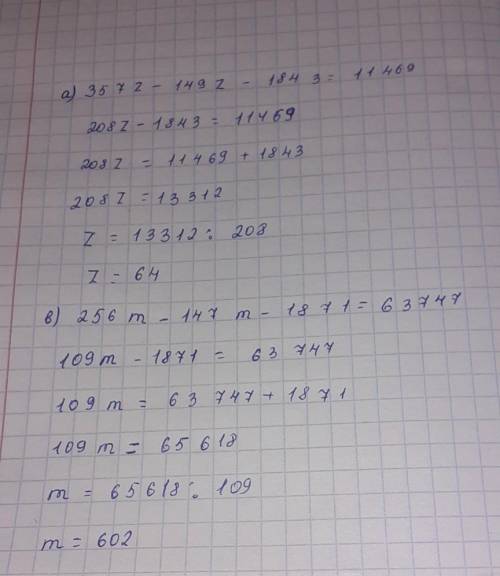 а) 357z - 149z - 1843 = 11469
208z - 1843 = 11469
208z = 11469 + 1843
208z = 13312
z = 13312 : 208
z = 64
в) 256m - 147m - 1871 = 63747
109m - 1871 = 63747
109m = 63747 + 1871
109m = 65618
m = 65618 : 109
m = 602